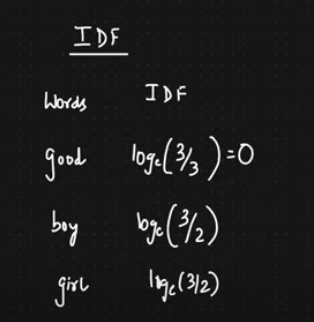 IDF
Words IDF
good loge(3/3)=0
boy loge(3/2)
girl loge(3/2)